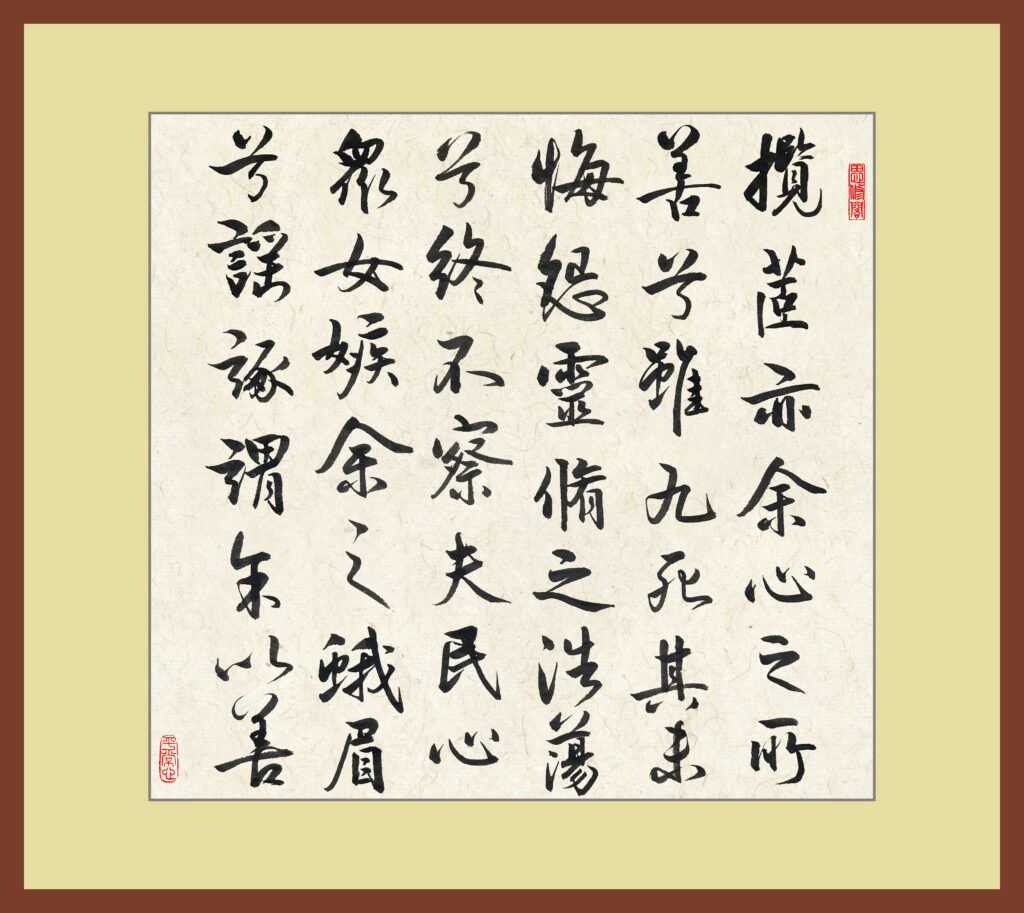 思修閣
攬茝亦余心之所
善兮雖九死其未
悔怨靈脩之浩蕩
兮終不察夫民心
眾女嫉余之蛾眉
兮謠諑謂余以善
平常心